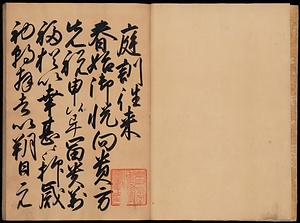 庭訓往来
春始御悦向貴方
先祝申候畢富貴万
福猶以幸甚々抑歳
初朝拝者以朔日元